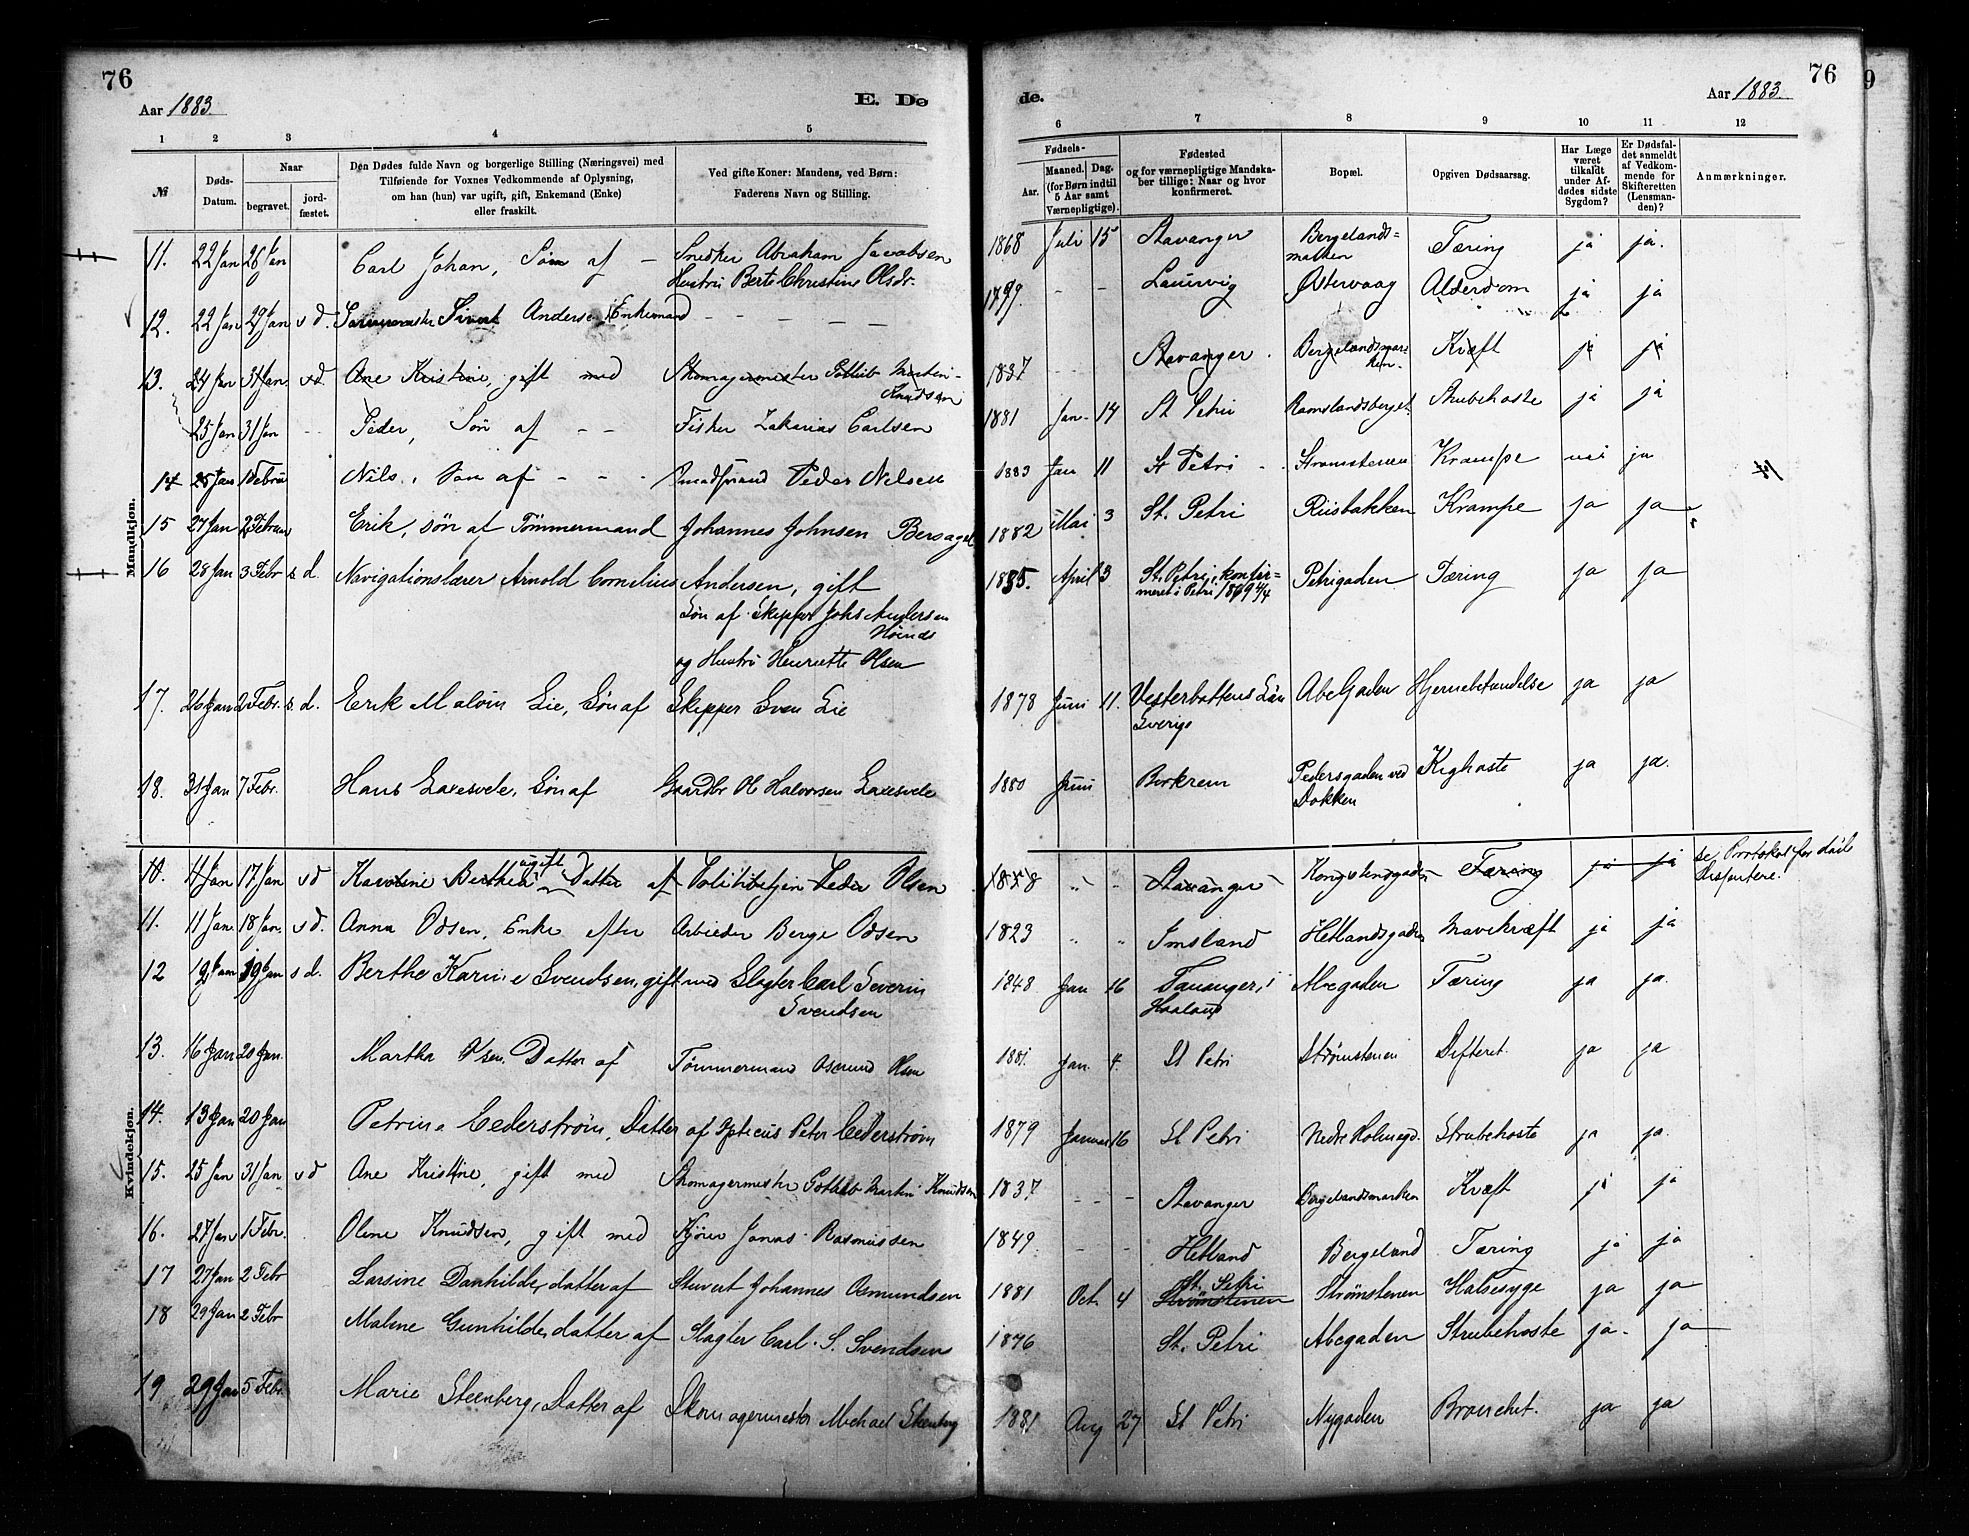 76
Aar 1883.
E. Dø
de.
Aar 1883.
76
9
1 2 3 4 5 6 7 8 9 10 11 12
№
Døds-Datum.
Naar
begravet.
jordfæstet.
Den Dødes fulde Navn og borgerlige Stilling (Næringsvei) med
Tilføiende for Voxnes Vedkommende af Oplysning,
om han (hun) var ugift, gift, Enkemand (Enke)
eller fraskilt.
Ved gifte Koner: Mandens, ved Børn:
Faderens Navn og Stilling.
Fødsels-
Aar.
Maaned. Dag.
(for Børn indtil
5 Aar samt
Værnepligtige).
Fødested
og for værnepligtige Mandskaber tillige: Naar og hvor
konfirmeret.
Bopæl.
Opgiven Dødsaarsag.
Har Læge
været
tilkaldt
under Afdødes sidste
Sygdom?
Er Dødsfaldet anmeldt
af Vedkommende for
Skifteretten
(Lensmanden)?
Anmærkninger.
Mandkjøn.
11. 22 Jan 26 Jan Carl Johan, Søn af - Snedker Abraham Jacobsen 1868 Juli 15 Stavanger Bergelands= Tæring ja ja.
Hustru Berte Christine Olsdr. marken
12. 22 Jan 29 Jan s d. Sivert Andersen Enkemand - - - - - 1799 - - Laurvig Østervaag Alderdom ja ja
13. 24 Jan 31 Jan s d. Ane Kristine, gift med Skomagermester Gottlieb Martin- 1837 - - Stavanger. Bergelandsmar- Kræft ja ja
Knudsen ken.
25 Jan 31 Jan - - Peder, Søn af - - Fisker Zakarias Carlsen 1881 Jan- 14 St Petri Ramslandsberget Strubehoste ja ja
14 25 Jan 1 Februar Nils, Søn af - - - Peder Nelsen 1883 Jan 11 St Petri - Strømstenen Krampe nei ja 14
15 27 Jan 2 Februar Erik, søn af Tømmermand Johannes Johnsen Bersagel 1882 Mai 3 St. Petri Riisbakken Krampe ja ja
16 28 Jan 3 Febr s d. Navigationslærer Arnold Cornelius Andersen, gift 1855. April 3 St. Petri, konfir= Petrigaden Tæring ja ja
meret i Petri 1869 4/4
Søn af Skipper Johs Andersen
og Hustru Henriette Olsen
17. 26 Jan 2 Febr. s d. Erik Malvin Lie, Søn af Skipper Sven Lie 1878 Juni 11. Vesterbottens Län Abelgaden Hjernebetændelse ja ja
Sverige
18. 31 Jan 7 Febr. Hans Laxesvele, Søn af Gaardbr Ol Halvorsen Laxesvele 1880 Juni Birkrem Pedersgaden ved Kighoste ja ja.
Dokken
Kvindekjøn.
10. 11 Jan 17 Jan s d Karoline Berthea ugift Datter af Politibetjen Peder Olsen 1858 " " Stavanger - Kongstensgaden Tæring ja ja se Protokol for
Disentere.
11. 11 Jan 18 Jan. s d. Anna Odsen, Enke efter Arbeider Berge Odsen 1823 " " Imsland Hetlandsgaden Mavekræft ja ja
12 12 Jan 19 Jan s d. Berthe Karine Svendsen, gift med Slagter Carl Severin 1848 Jan 16 Tananger, i Abegaden Tæring ja ja.
Svendsen Haaland
13. 16 Jan 20 Jan. Martha Olsen, Datter af Tømmermand Osmund Olsen 1881. Jan. 4. St Petri Strømstenen Difteret. ja ja
14. 13 Jan 20 Jan Petrine Cederstrøm, Datter af Opticus Peter Cederstrøm 1879 Januar 16 St Petri Nedre Holmegd. Strubehoste ja ja.
15. 25 Jan 31 Jan s d Ane Kristine, gift med Skomagermester Gottlieb Martin Knudsen 1837 - - Stavanger Bergelandsmarken Kræft ja ja
16. 27 Jan 1 Febr. Oline Knudsen, gift med Kjører Jonas Rasmussen 1849. - - Hetland Bergeland Tæring ja ja
17 27 Jan 2 Febr Larsine Danhilde, datter af Stuvert Johannes Osmundsen 1881 Oct. 4 St. Petri Strømstenen Strømstenen Halsesyge ja ja
18 29 Jan 2 Febr Malene Gunhilde, datter af Slagter Carl. S. Svendsen 1876 St. Petri Abegaden Strubehoste ja - ja
19 29 Jan 5 Febr. Marie Steenberg, Datter af Skomagermester Michael Steenberg 1881 Aug 27 St Petri Nygaden Bronchit. ja ja